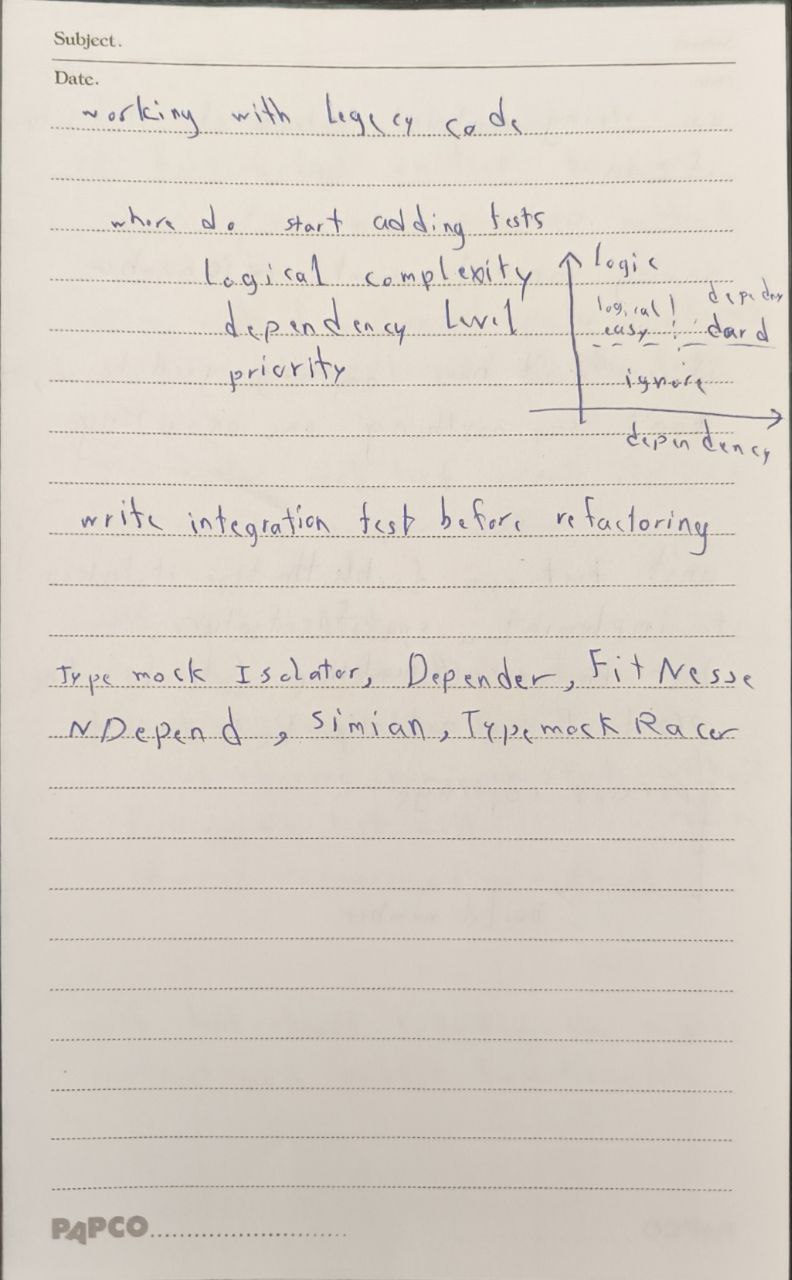 Subject.
Date.
working with legacy code
where do start adding tests
logical complexity
dependency level
priority
logic
logical easy
dard
ignore
dependency
write integration test before refactoring
Type mock Isolator, Depender, FitNesse
NDepend, Simian, Typemock Racer
PAPCO